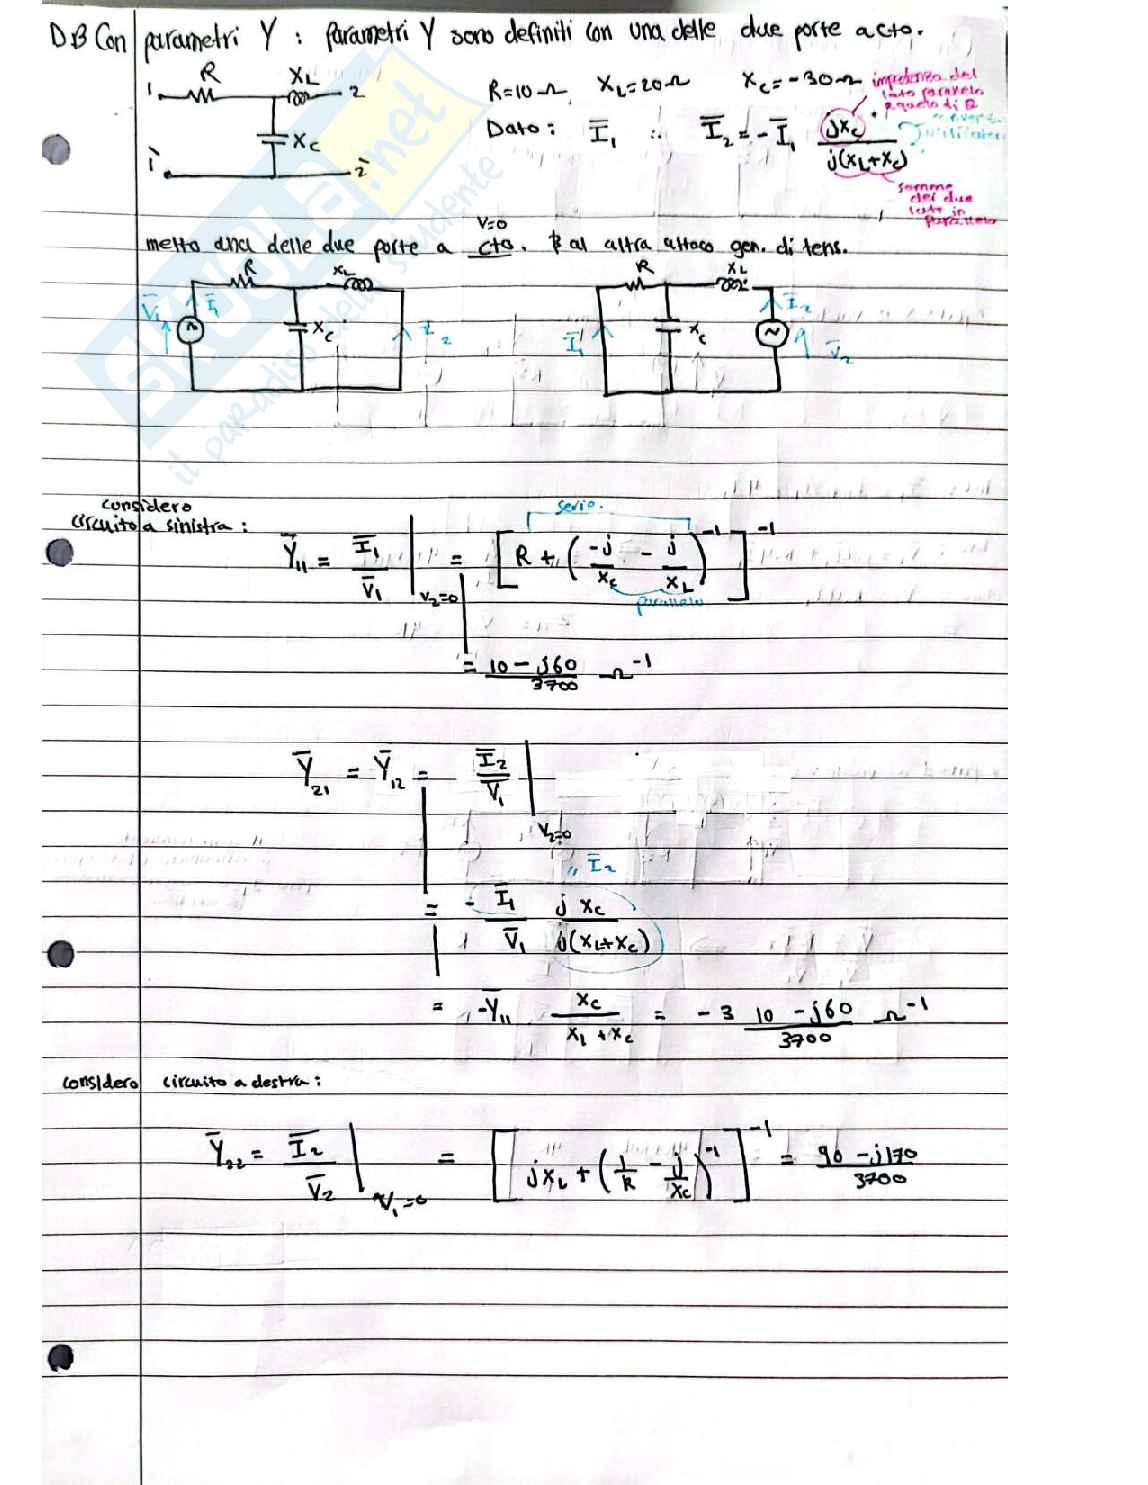 D.B Con parametri Y : parametri Y sono definiti con una delle due porte a cto.
R XL
1 2
XC
1̄ 2̄
R=10 Ω XL=20 Ω XC=-30 Ω
impedenza del lato parallelo a quello di
Dato : Ī₁ ∴ Ī₂ = -Ī₁ jXC / j(XL+XC)
somma dei due lati in parallelo
V=0
metto una delle due porte a cto. E al altra attacco gen. di tens.
R XL R XL
V̄₁ Ī₁ XC I₂ Ī₁ XC Ī₂ V̄₂
considero
circuito a sinistra :
serie.
Ȳ₁₁ = Ī₁/V̄₁ |V₂=0 = [R + (-j/XC - j/XL)⁻¹]⁻¹
parallelo
= 10 - j60 / 3700 Ω⁻¹
Ȳ₂₁ = Ȳ₁₂ = Ī₂/V̄₁ |V₂=0
" Ī₂
= - Ī₁/V̄₁ jXC / j(XL+XC)
= -Ȳ₁₁ XC / XL + XC = - 3 10 - j60 / 3700 Ω⁻¹
considero circuito a destra :
Ȳ₂₂ = Ī₂/V̄₂ |V₁=0 = [jXL + (1/R - j/XC)⁻¹]⁻¹ = 90 - j170 / 3700
SKUOLA.net
il paradiso dello studente